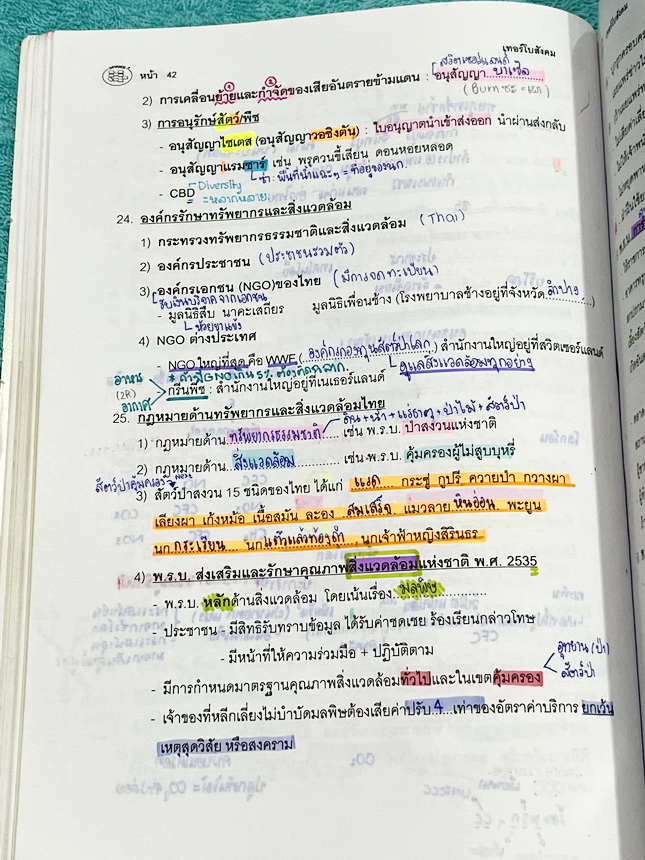 เทอร์โบสังคม
หน้า 42
สวิตเซอร์แลนด์
① ②
2) การเคลื่อนย้ายและกำจัดของเสียอันตรายข้ามแดน : อนุสัญญา บาเซิล
(Bum ขยะ = แตก)
3) การอนุรักษ์สัตว์/พืช
- อนุสัญญาไซเตส (อนุสัญญาวอชิงตัน) : ใบอนุญาตนำเข้าส่งออก นำผ่านส่งกลับ
- อนุสัญญาแรมซาร์ เช่น พรุควนขี้เสียน ดอนหอยหลอด
ซา : พื้นที่น้ำแฉะๆ = ที่อยู่ของนก
- CBD Diversity
= หลากหลาย
24. องค์กรรักษาทรัพยากรและสิ่งแวดล้อม
1) กระทรวงทรัพยากรธรรมชาติและสิ่งแวดล้อม (Thai)
2) องค์กรประชาชน (ประชาชนรวมตัว)
3) องค์กรเอกชน (NGO) ของไทย (มีการจดทะเบียน)
รับเงินบริจาคจากเอกชน
- มูลนิธิสืบ นาคะเสถียร มูลนิธิเพื่อนช้าง (โรงพยาบาลช้างอยู่ที่จังหวัด ลำปาง )
ห้วยขาแข้ง
4) NGO ต่างประเทศ
NGO ใหญ่ที่สุด คือ WWF ( องค์การกองทุนสัตว์ป่าโลก ) สำนักงานใหญ่อยู่ที่สวิตเซอร์แลนด์
อาหาร
ดูแลสิ่งแวดล้อมทุกอย่าง
(2R) กรีนพีซ : สำนักงานใหญ่อยู่ที่เนเธอร์แลนด์
อากาศ
25. กฎหมายด้านทรัพยากรและสิ่งแวดล้อมไทย
ดิน + น้ำ + แร่ธาตุ + ป่าไม้ + สัตว์ป่า
1) กฎหมายด้าน ทรัพยากรธรรมชาติ เช่น พ.ร.บ. ป่าสงวนแห่งชาติ
2) กฎหมายด้าน สิ่งแวดล้อม เช่น พ.ร.บ. คุ้มครองผู้ไม่สูบบุหรี่
สัตว์ป่าคุ้มครอง
3) สัตว์ป่าสงวน 15 ชนิดของไทย ได้แก่ แรด กระซู่ กูปรี ควายป่า กวางผา
เลียงผา เก้งหม้อ เนื้อสมัน ละอง สมเสร็จ แมวลาย หินอ่อน พะยูน
นก กระเรียน นก แต้วแล้วท้องดำ นกเจ้าฟ้าหญิงสิรินธร
4) พ.ร.บ. ส่งเสริมและรักษาคุณภาพสิ่งแวดล้อมแห่งชาติ พ.ศ. 2535
- พ.ร.บ. หลักด้านสิ่งแวดล้อม โดยเน้นเรื่อง มลพิษ
- ประชาชน - มีสิทธิรับทราบข้อมูล ได้รับค่าชดเชย ร้องเรียนกล่าวโทษ
- มีหน้าที่ให้ความร่วมมือ + ปฏิบัติตาม
อุทยาน (ป่า)
- มีการกำหนดมาตรฐานคุณภาพสิ่งแวดล้อมทั่วไปและในเขตคุ้มครอง
สัตว์ป่า
- เจ้าของที่หลีกเลี่ยงไม่บำบัดมลพิษต้องเสียค่าปรับ 4 เท่าของอัตราค่าบริการ ยกเว้น
เหตุสุดวิสัย หรือสงคราม